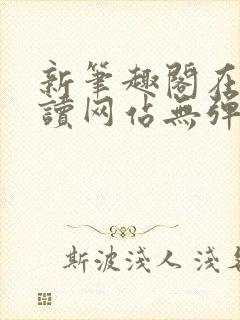 新筆趣閣在
讀网佔無彈
斯波淺人 淺